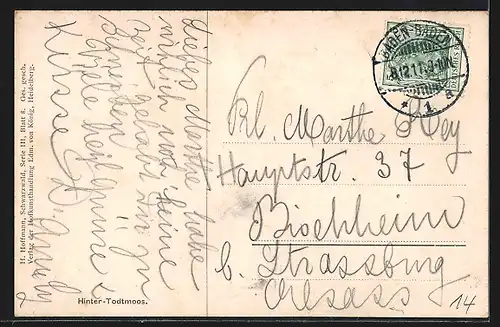 Liebes Marthe habe
wirklich noch keine
zeit gehabt Dir zu
schreiben
Viele herzl. Grüsse &
Küsse
H. Hoffmann, Schwarzwald, Serie III, Blatt 8. Ges. gesch.
Verlag der Hofkunsthandlung Edm. von König, Heidelberg.
Hinter-Todtmoos.
BADEN-BADEN
1
a
Frl. Marthe Hey
Hauptstr. 37
Bischheim
b. Strassburg
Elsass
14